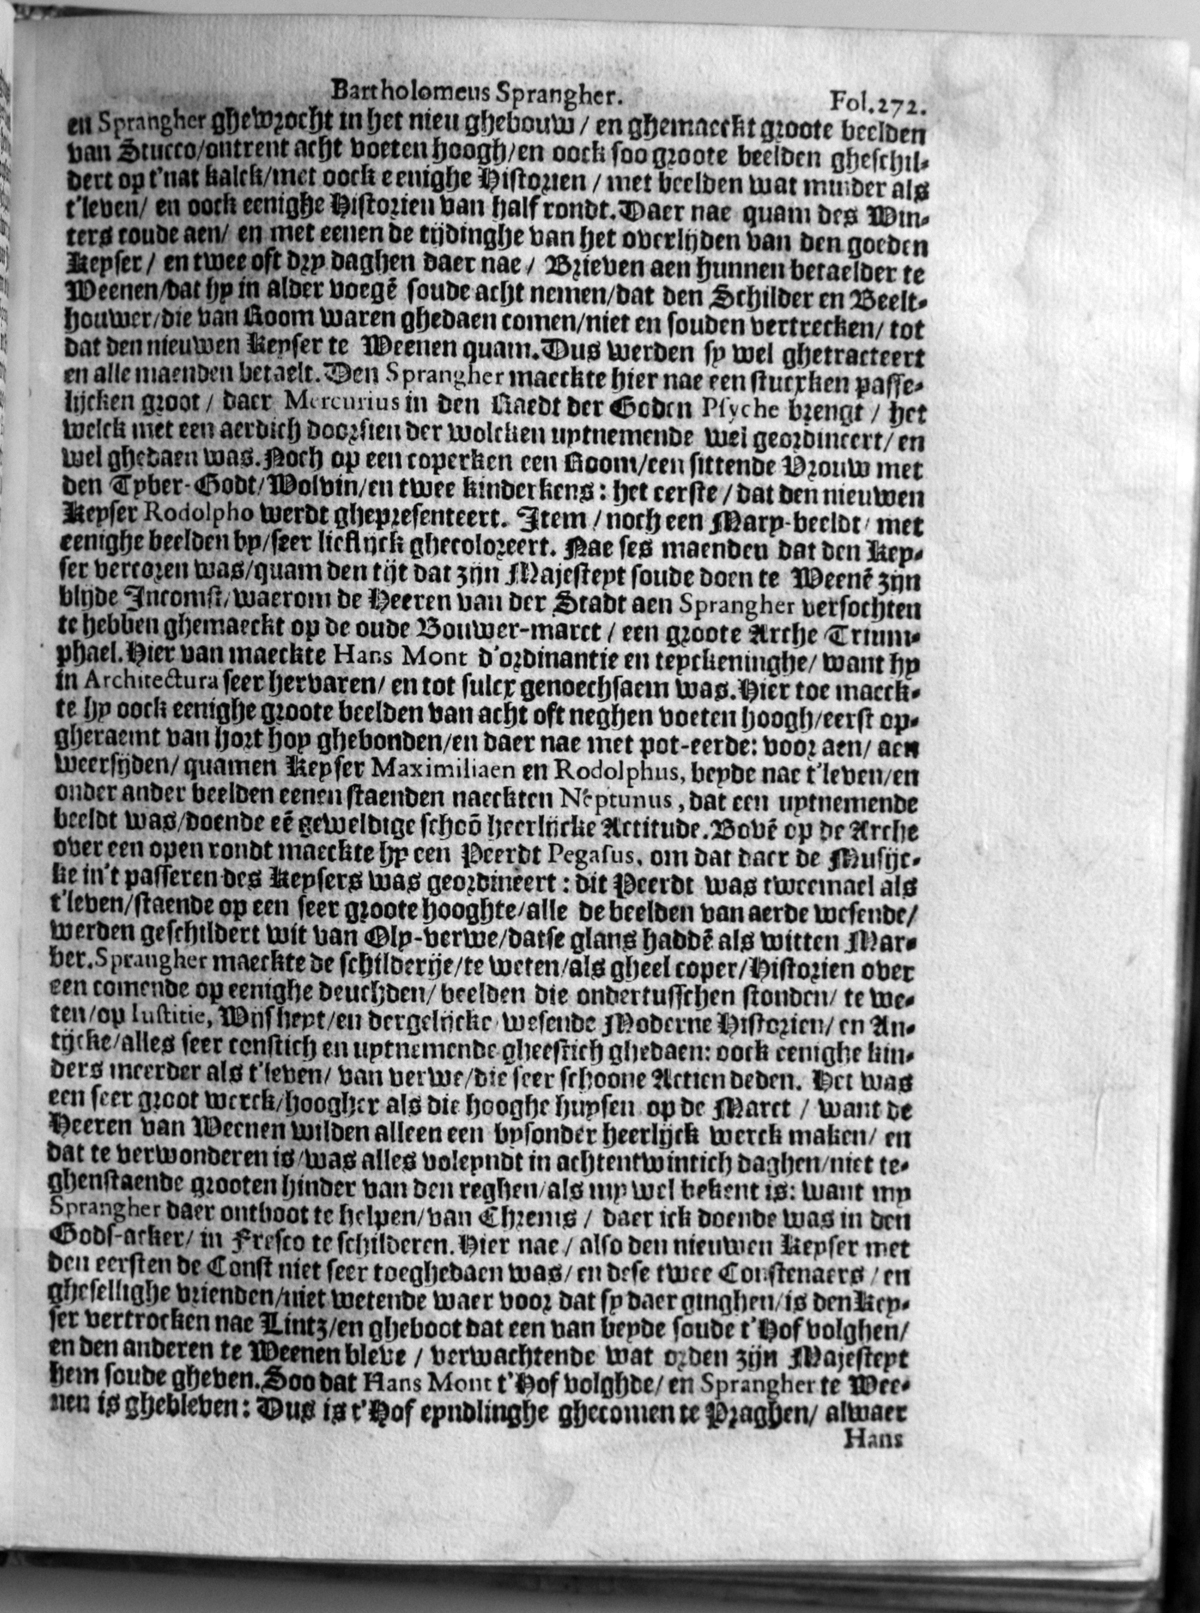 Bartholomeus Sprangher.
Fol.272.
en Sprangher ghewrocht in het nieu ghebouw/ en ghemaeckt groote beelden
van Stucco/ontrent acht voeten hoogh/en oock soo groote beelden gheschil-
dert op t'nat kalck/met oock eenighe Historien / met beelden wat minder als
t'leven/ en oock eenighe Historien van half rondt. Daer nae quam des Win-
ters coude aen/ en met eenen de tijdinghe van het overlijden van den goeden
Keyser / en twee oft dry daghen daer nae / Brieven aen hunnen betaelder te
Weenen/dat hy in alder voegē soude acht nemen/dat den Schilder en Beelt-
houwer/die van Room waren ghedaen comen/niet en souden vertrecken/ tot
dat den nieuwen Keyser te Weenen quam. Dus werden sy wel ghetracteert
en alle maenden betaelt. Den Sprangher maeckte hier nae een stucxken passe-
lijcken groot / daer Mercurius in den Raedt der Goden Psyche brengt / het
welck met een aerdich doorsien der wolcken uytnemende wel geordineert/ en
wel ghedaen was. Noch op een coperken een Room/een sittende Vrouw met
den Tyber-Godt/Wolvin/en twee kinderkens: het eerste / dat den nieuwen
Keyser Rodolpho werdt ghepresenteert. Item / noch een Mary-beeldt/ met
eenighe beelden by/seer lieflijck ghecoloreert. Nae ses maenden dat den Key-
ser vercoren was/quam den tijt dat zijn Majesteyt soude doen te Weenē zijn
blijde Incomst/waerom de Heeren van der Stadt aen Sprangher versochten
te hebben ghemaeckt op de oude Bouwer-marct / een groote Arche Trium-
phael. Hier van maeckte Hans Mont d'ordinantie en teyckeninghe/ want hy
in Architectura seer hervaren/ en tot sulcx genoechsaem was. Hier toe maeck-
te hy oock eenighe groote beelden van acht oft neghen voeten hoogh/eerst op-
gheraemt van hort hoy ghebonden/en daer nae met pot-eerde: voor aen/ aen
weersijden/ quamen Keyser Maximiliaen en Rodolphus, beyde nae t'leven/en
onder ander beelden eenen staenden naeckten Neptunus, dat een uytnemende
beeldt was/doende eē geweldige schoō heerlijcke Actitude. Bovē op de Arche
over een open rondt maeckte hy een Peerdt Pegasus, om dat daer de Musijc-
ke in't passeren des Keysers was geordineert: dit Peerdt was tweemael als
t'leven/staende op een seer groote hooghte/alle de beelden van aerde wesende/
werden geschildert wit van Oly-verwe/datse glans haddē als witten Mar-
ber. Sprangher maeckte de schilderije/te weten/als gheel coper/Historien over
een comende op eenighe deuchden/ beelden die ondertusschen stonden/ te we-
ten/op Iustitie, Wijsheyt/en dergelijcke wesende Moderne Historien/ en An-
tijcke/alles seer constich en uytnemende gheestich ghedaen: oock eenighe kin-
ders meerder als t'leven/ van verwe/die seer schoone Actien deden. Het was
een seer groot werck/hoogher als die hooghe huysen op de Marct / want de
Heeren van Weenen wilden alleen een bysonder heerlijck werck maken/ en
dat te verwonderen is/was alles voleyndt in achtentwintich daghen/niet te-
ghenstaende grooten hinder van den reghen/als my wel bekent is: want my
Sprangher daer ontboot te helpen/van Chrems / daer ick doende was in den
Gods-acker/ in Fresco te schilderen. Hier nae / also den nieuwen Keyser met
den eersten de Const niet seer toeghedaen was/ en dese twee Constenaers / en
ghesellighe vrienden/niet wetende waer voor dat sy daer ginghen/is den Key-
ser vertrocken nae Lintz/en gheboot dat een van beyde soude t'Hof volghen/
en den anderen te Weenen bleve / verwachtende wat orden zijn Majesteyt
hem soude gheven. Soo dat Hans Mont t'Hof volghde/ en Sprangher te Wee-
nen is ghebleven: Dus is t'Hof eyndlinghe ghecomen te Praghen/ alwaer
Hans